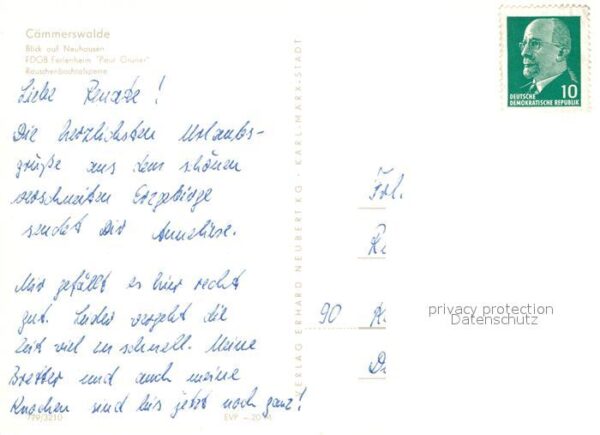 Cämmerswalde
Blick auf Neuhausen
FDGB Ferienheim "Paul Gruner"
Rauschenbachtalsperre
Liebe Renate!
Die herzlichsten Urlaubs-
grüße aus dem schönen
verschneiten Erzgebirge
sendet Dir Anneliese.
Mir gefällt es hier recht
gut. Leider vergeht die
Zeit viel zu schnell. Meine
Bretter und auch meine
Knochen sind bis jetzt noch ganz!
EVP – 20 M
VERLAG ERHARD NEUBERT KG · KARL-MARX-STADT
10
DEUTSCHE
DEMOKRATISCHE REPUBLIK
Frl.
90
privacy protection
Datenschutz